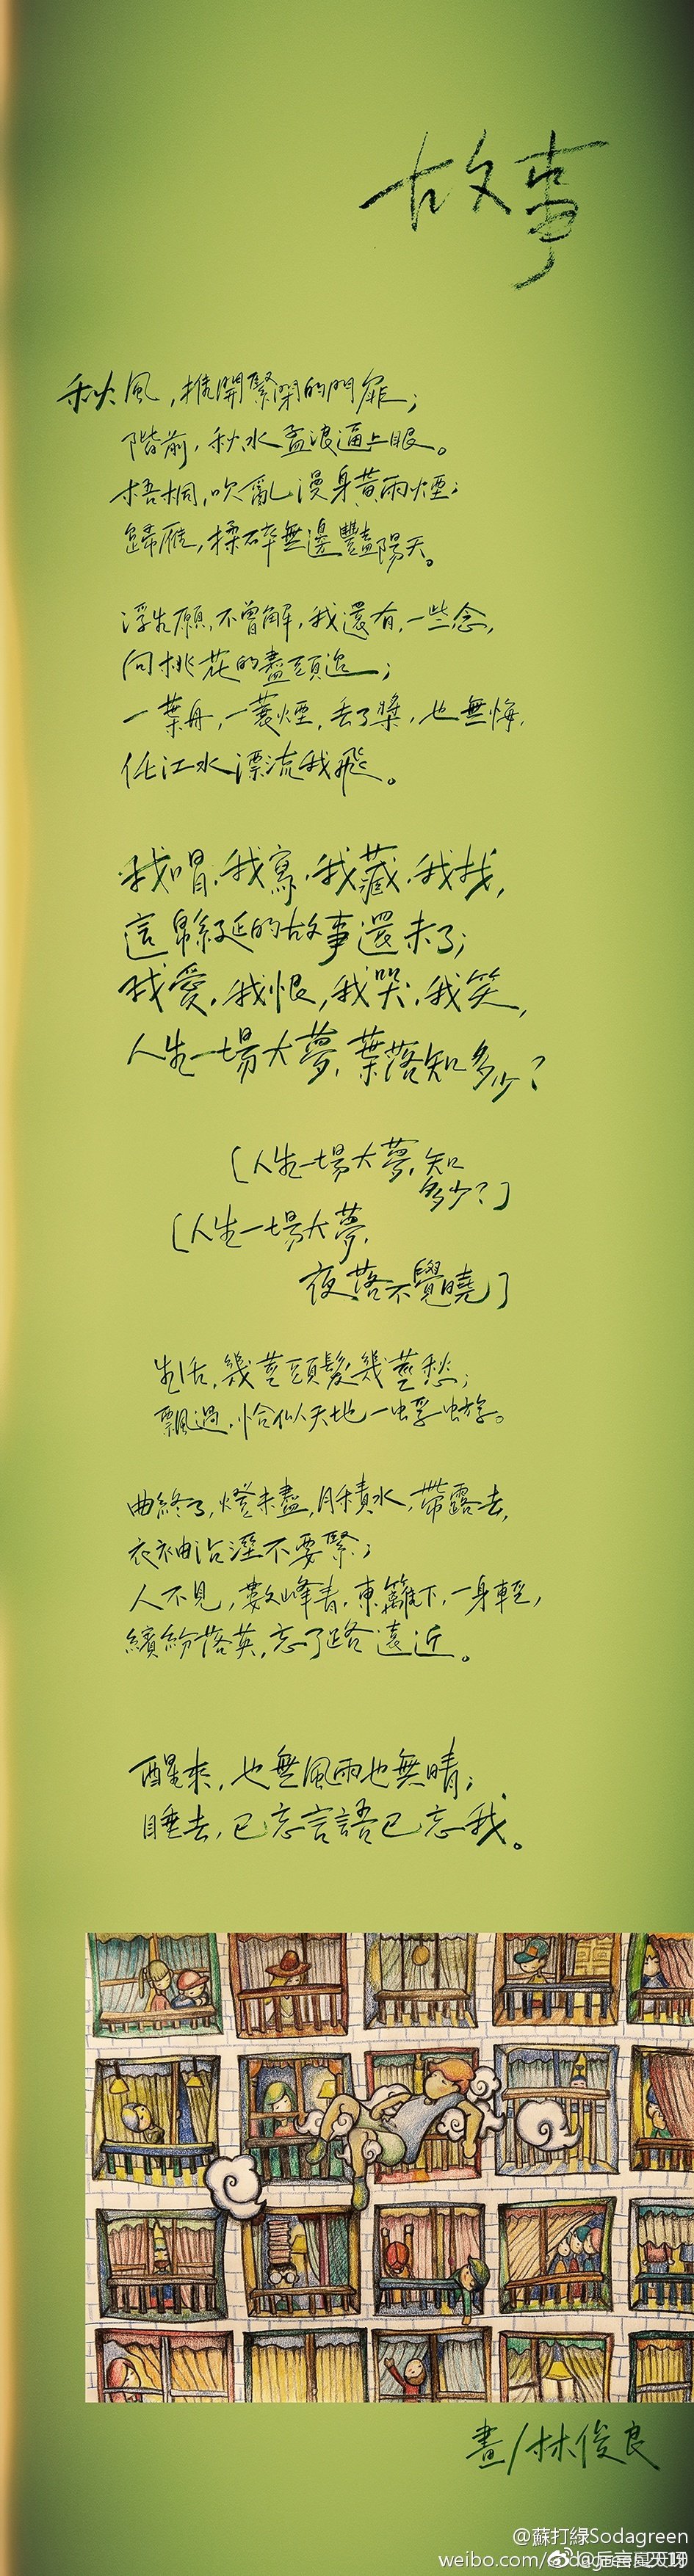 故事
秋風，推開緊閉的門扉；
階前，秋水孟浪逼上眼。
梧桐，吹亂漫身黃雨煙；
歸雁，揉碎無邊豔陽天。
浮生願，不曾解，我還有，一些念，
向桃花的盡頭追；
一葉舟，一蓑煙，丟了槳，也無悔，
任江水漂流我飛。
我唱，我寫，我藏，我找，
這綿延的故事還未了；
我愛，我恨，我哭，我笑，
人生一場大夢，葉落知多少？
〔人生一場大夢，知
多少？〕
〔人生一場大夢，
夜落不覺曉〕
生活，幾莖頭髮幾莖愁；
飄過，恰似天地一蜉蝣。
曲終了，燈未盡，月積水，帶露去，
衣袖沾溼不要緊；
人不見，數峰青，東籬下，一身輕，
繽紛落英，忘了路遠近。
醒來，也無風雨也無晴；
睡去，已忘言語已忘我。
畫/林俊良
@蘇打綠Sodagreen
weibo.com/sodagreen2019